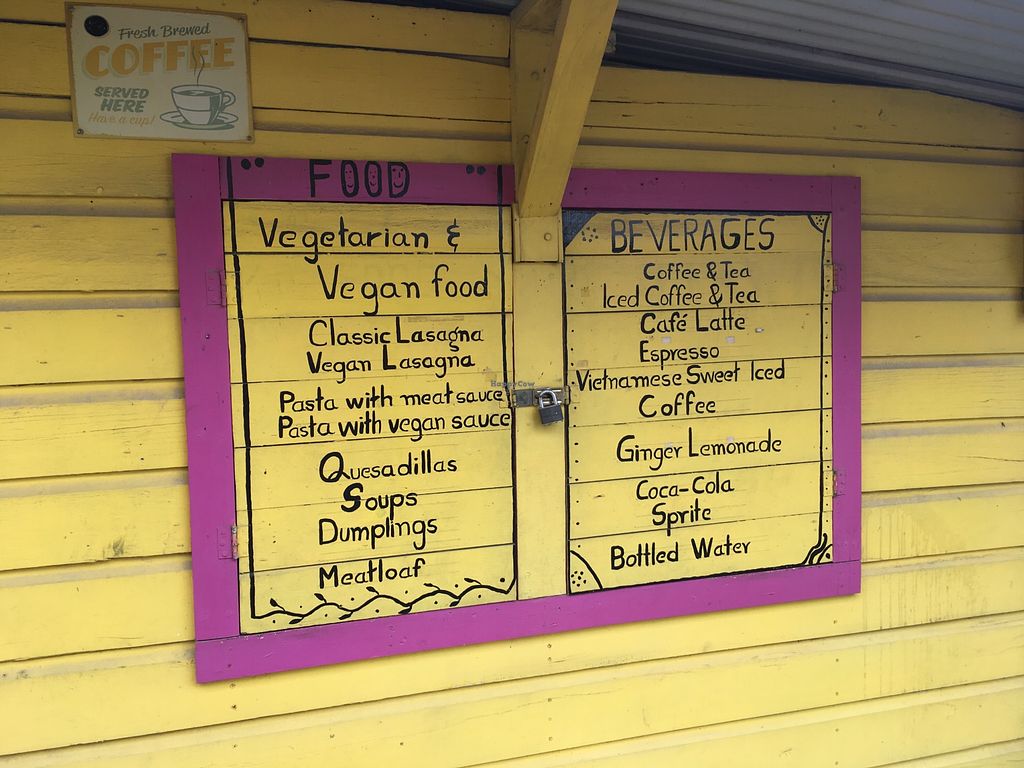 Fresh Brewed
COFFEE
SERVED
HERE
Have a cup!
" FOOD "
Vegetarian &
Vegan food
Classic Lasagna
Vegan Lasagna
Pasta with meat sauce
Pasta with vegan sauce
Quesadillas
Soups
Dumplings
Meatloaf
BEVERAGES
Coffee & Tea
Iced Coffee & Tea
Café Latte
Espresso
Vietnamese Sweet Iced
Coffee
Ginger Lemonade
Coca-Cola
Sprite
Bottled Water
HappyCow